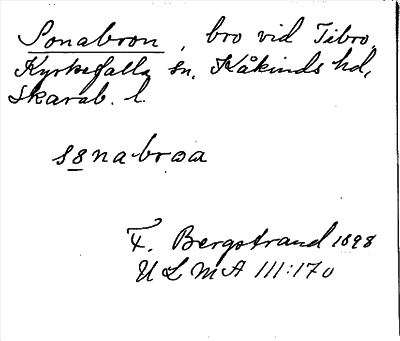 Sonabron, bro vid Tibro,
Kyrkefalla sn, Kåkinds hd,
Skarab. l.
s8nabroa
F. Bergstrand 1898
ULMA 111:170